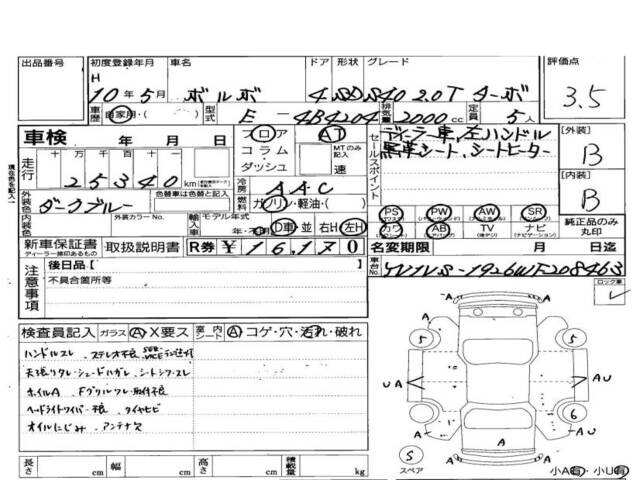 出品番号 初度登録年月 車名 ドア 形状 グレード 評価点
H 10年 5月 ボルボ 4 SD S40 2.0T ターボ 3.5
車歴 自家用・( ) 型式 E-4B4204 排気量 2000cc 定員 5人
車検 年 月 日 フロア コラム・ダッシュ AT MTのみ記入 速
セールスポイント ディーラー車、左ハンドル
黒革シート、シートヒーター
[外装] B
走行 十万 万 千 百 十 一 25340 km
冷房 AAC
[内装] B
外装色 ダークブルー 色替車は色替色を記入
燃料 ガソリン・軽油・( )
PS PW AW SR
カワ AB TV ナビ 純正品のみ丸印
内装色 外装カラーNo. 輸入車 モデル年式 D車 並 右H 左H
新車保証書 取扱説明書 R券 ¥16,170
名変期限 月 日迄
車台No. YV1VS-1926WF208463
注意事項 後日品[ ]
不具合箇所等
ロック車
検査員記入 ガラス A X要ス 室内シート A コゲ・穴・汚れ・破れ
ハンドルスレ、ステレオ不良 SERVICE
天張りタレ・シェードハガレ、シートシワ・スレ
ホイルA、Fグリルワレ・取付不良
ヘッドライトワイパー不良、タイヤヒビ
オイルにじみ、アンテナ欠
A
A A
5 5
UA AU
A A
5 6
S スペア
A
A
小A有・小U有
長さ cm 幅 cm 高さ cm 積載量 kg